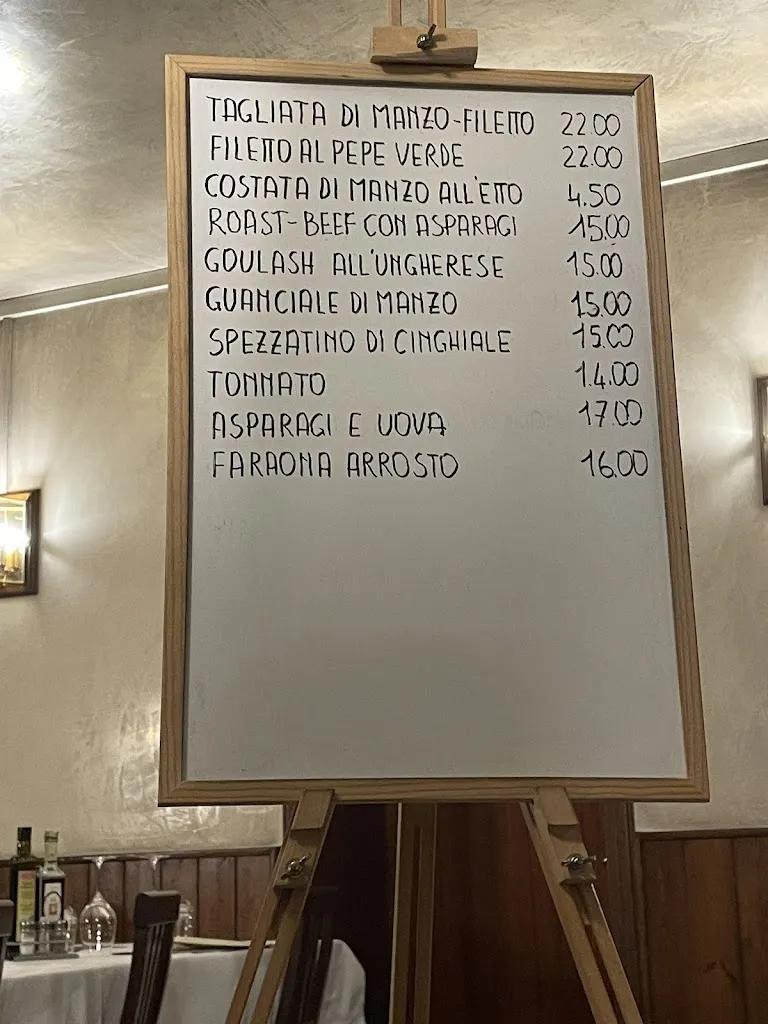 TAGLIATA DI MANZO-FILETTO 22.00
FILETTO AL PEPE VERDE 22.00
COSTATA DI MANZO ALL'ETTO 4.50
ROAST-BEEF CON ASPARAGI 15.00
GOULASH ALL'UNGHERESE 15.00
GUANCIALE DI MANZO 15.00
SPEZZATINO DI CINGHIALE 15.00
TONNATO 14.00
ASPARAGI E UOVA 17.00
FARAONA ARROSTO 16.00